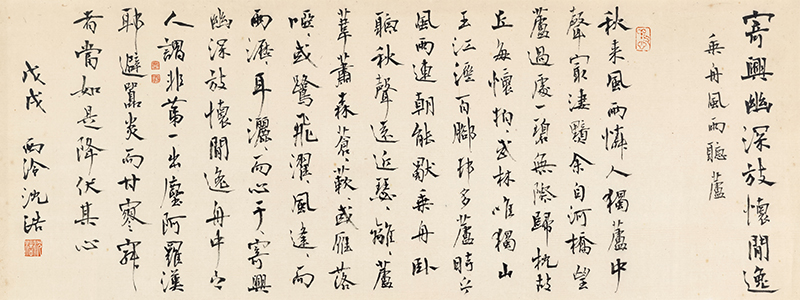 寄興幽深放懷閒逸
乘舟風雨聽蘆
秋來風雨憐人獨蘆中
聲最淒黯余自河橋望
蘆過處一碧無際歸枕故
丘每懷拍、武林唯獨山
王江涇百腳村多蘆時乎
風雨連朝能獨乘舟臥
聽秋聲遠近瑟、離、蘆
葦蕭森蒼、蔌、或雁落
啞、或鷺飛濯、風逢、而
雨瀝、耳灑、而心于、寄興
幽深放懷閒逸舟中之
人謂非第一出塵阿羅漢
耶避囂炎而甘寥寂
者當如是降伏其心
戊戌 西泠沈浩